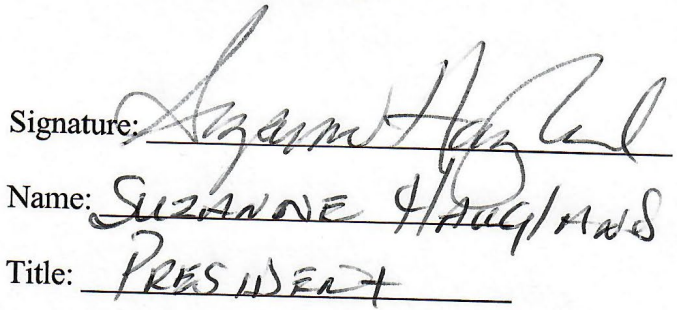 Signature: Suzanne Haugland
Name: SUZANNE HAUGLAND
Title: PRESIDENT